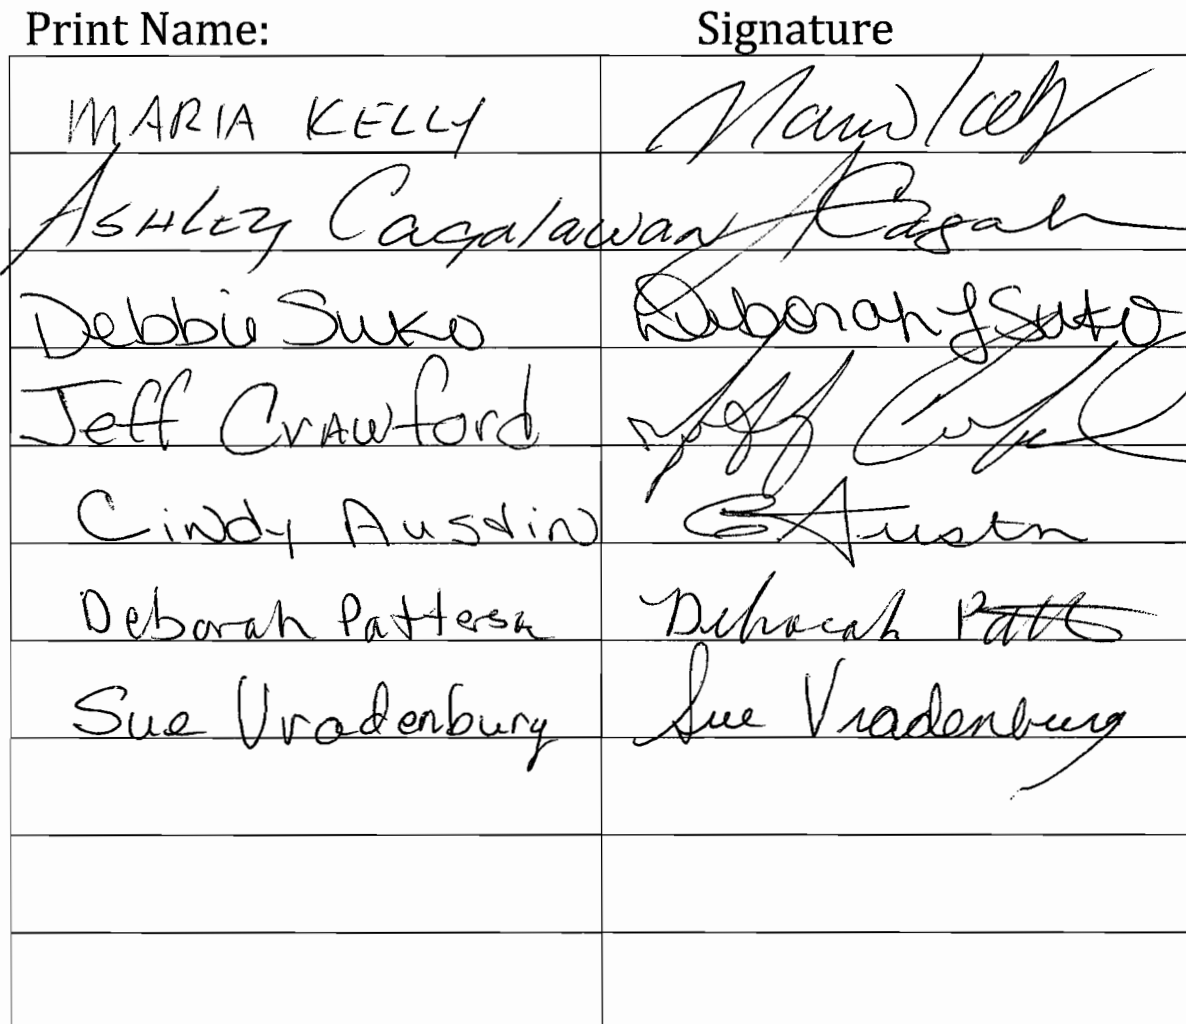 Print Name: Signature
MARIA KELLY Maria Kelly
ASHLEY Cagalawan
Debbie Suko Deborah L Suko
Jeff Crawford Jeff
Cindy Austin C Austin
Deborah Patterson Deborah Patt
Sue Vradenburg Sue Vradenburg